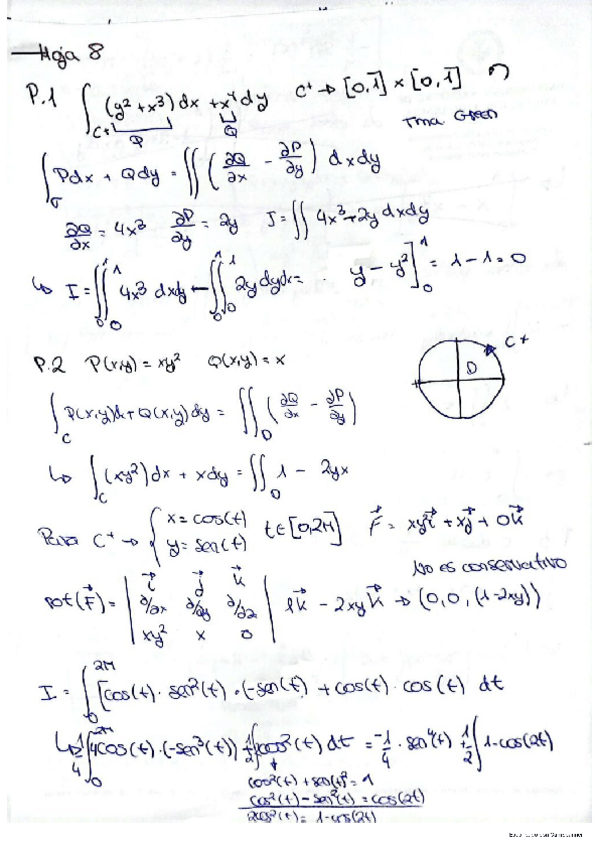 Hoja 8
P.1 ∫_{C+} (y² + x³) dx + x⁴ dy C⁺ → [0,1] × [0,1]
P Q Tma Green
∫_σ Pdx + Qdy = ∬ (∂Q/∂x - ∂P/∂y) dxdy
∂Q/∂x = 4x³ ∂P/∂y = 2y I = ∬ 4x³ - 2y dxdy
↳ I = ∫₀¹∫₀¹ 4x³ dxdy - ∫₀¹∫₀¹ 2y dydx = y - y²]₀¹ = 1 - 1 = 0
P.2 P(x,y) = xy² Q(x,y) = x
C+
D
∫_C P(x,y)dx + Q(x,y)dy = ∬_D (∂Q/∂x - ∂P/∂y)
↳ ∫_C (xy²)dx + xdy = ∬_D 1 - 2yx
Para C⁺ → { x = cos(t) y = sen(t) t∈[0,2π] F⃗ = xy²i⃗ + xj⃗ + 0k⃗
No es conservativo
rot(F⃗) = | i⃗ j⃗ k⃗ ∂/∂x ∂/∂y ∂/∂z xy² x 0 | 1k⃗ - 2xyk⃗ → (0,0,(1-2xy))
I = ∫₀^{2π} [cos(t) · sen²(t) · (-sen(t)) + cos(t) · cos(t) dt
↳ 1/4 ∫₀^{2π} 4cos(t)·(-sen³(t)) + 1/2 ∫ 2cos²(t) dt = -1/4 · sen⁴(t) + 1/2 ∫ 1-cos(2t)
cos²(t) + sen(t)² = 1
cos²(t) - sen²(t) = cos(2t)
2cos²(t) = 1-cos(2t)